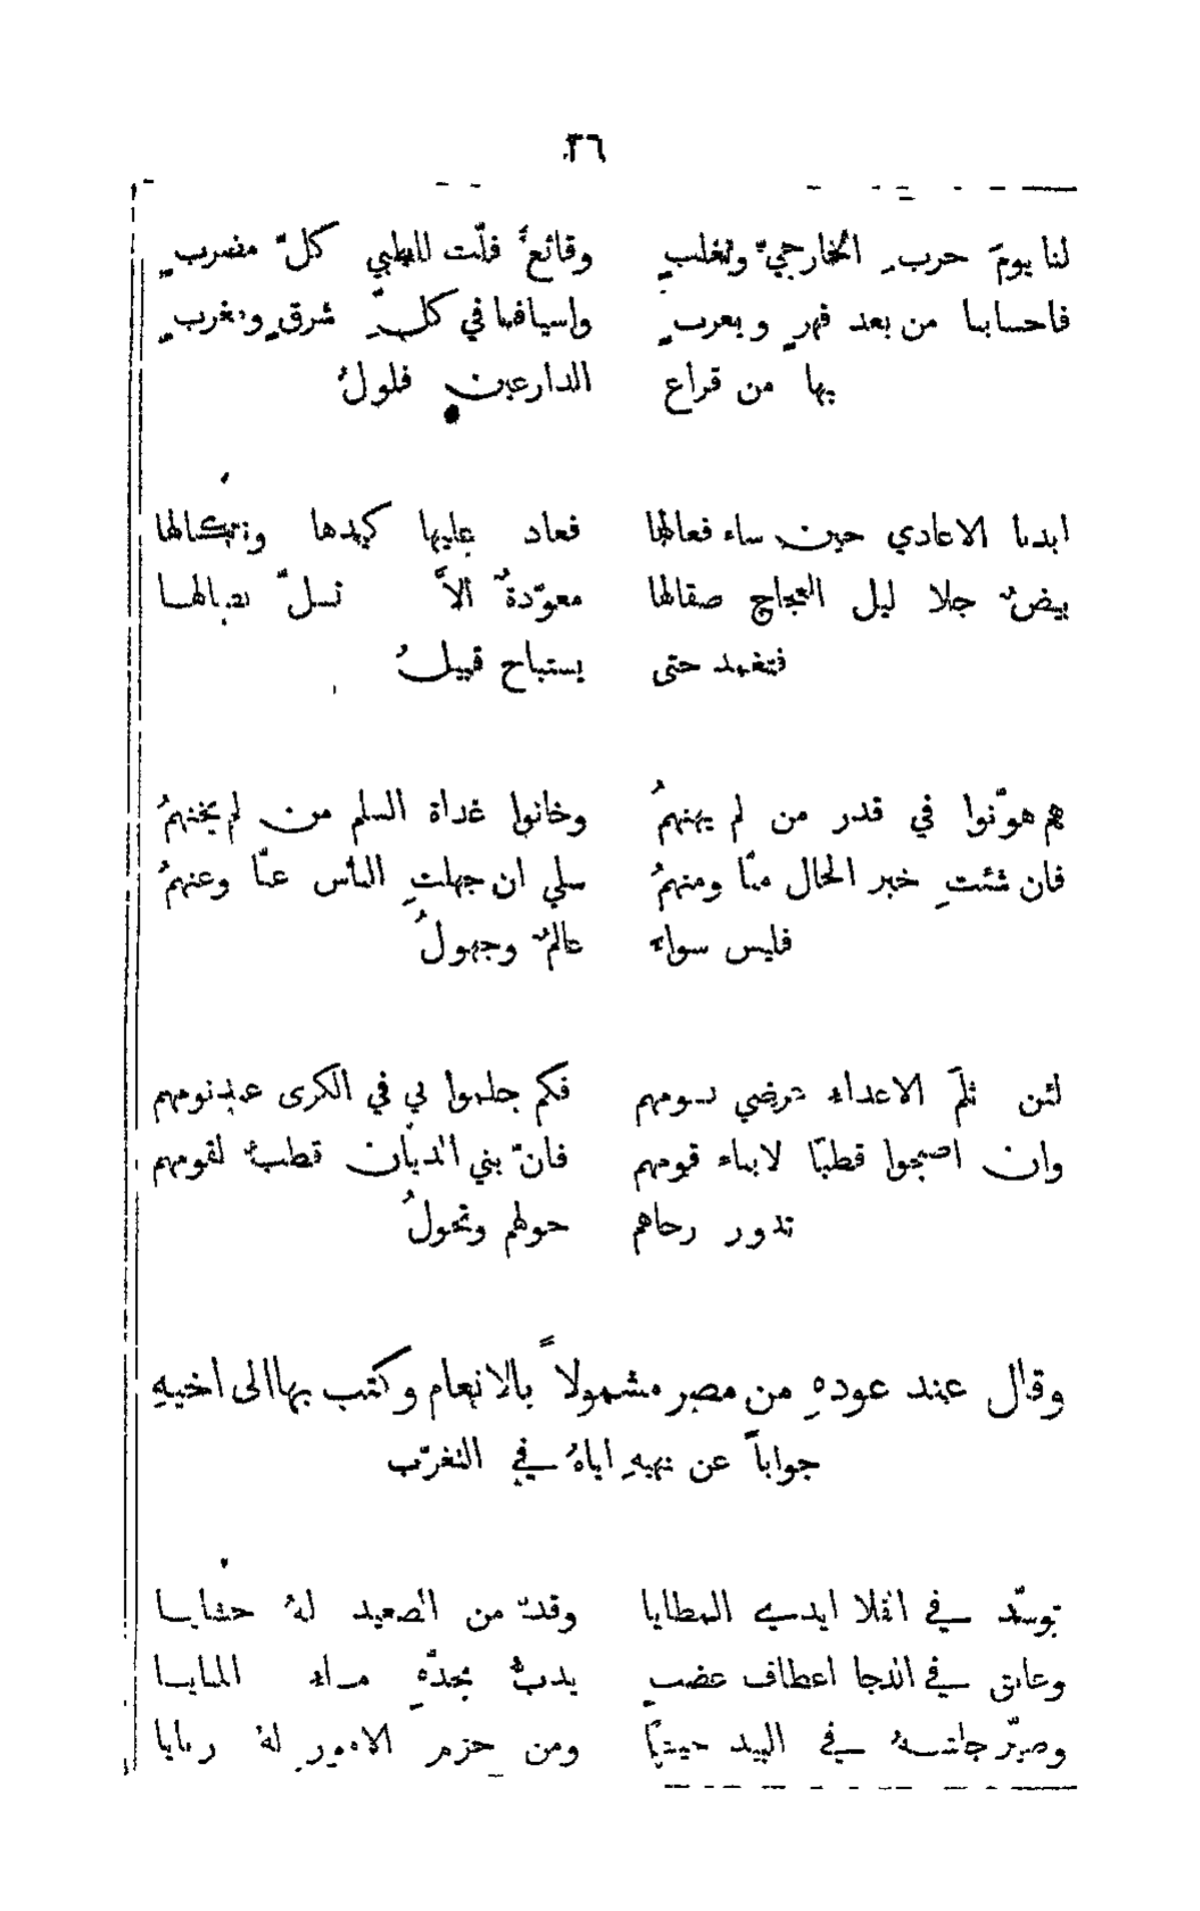 ٣٦
لنا يومَ حربِ الخارجيّ وتغلبٍ وقائعٌ فلّت للظبي كلّ مضربٍ
فاحسابنا من بعد فهرٍ ويعربٍ واسيافنا في كلّ شرقٍ ومغربٍ
بها من قراع الدارعين فلولُ
ابدنا الاعادي حين ساء فعالها فعاد عليها كيدها ونكالها
بيضٌ جلا ليل العجاج صقالها معوّدةٌ الاَّ تسلّ نصالها
فتغمد حتى يستباح قبيلُ
هم هوّنوا في قدر من لم يهنهمُ وخانوا غداة السلم من لم يخنهمُ
فان شئتِ خبر الحال منّا ومنهمُ سلي ان جهلتِ الناس عنّا وعنهمُ
فليس سواء عالمٌ وجهولُ
لئن ثلمَ الاعداء عرضي بسومهم فكم حلموا بي في الكرى عند نومهم
وان اصبحوا قطبًا لابناء قومهم فانّ بني الديّان قطبٌ لقومهم
تدور رحاهم حولهم وتحولُ
وقال عند عودهِ من مصر مشمولاً بالانعام وكتب بها الى اخيهِ
جواباً عن نهيهِ اياهُ في التغرّب
توسّد في الفلا ايدي المطايا وقدّ من الصعيد لهُ حشايا
وعانق في الدجا اعطاف عضبٍ يدبُّ بحدّهِ ماء المنايا
وصيّر جاشهُ في البيد جيشًا ومن حزم الامور لهُ ربايا